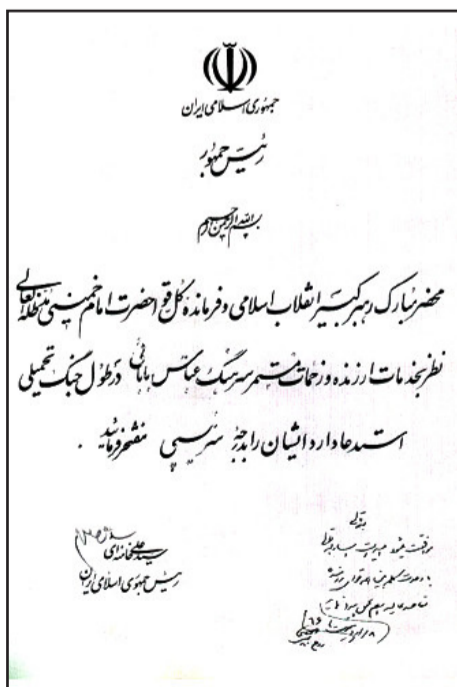 جمهوری اسلامی ایران
رئیس جمهور
بسم الله الرحمن الرحیم
محضر مبارک رهبر کبیر انقلاب اسلامی و فرمانده کل قوا حضرت امام خمینی مدظله العالی
نظر بخدمات ارزنده و زحمات مستمر سرهنگ عباس بابائی در طول جنگ تحمیلی
استدعا دارد ایشان را بدرجه سرتیپی مفتخر فرمائید .
سید علی خامنه ای
رئیس جمهوری اسلامی ایران
بتعالی
موافقت میشود